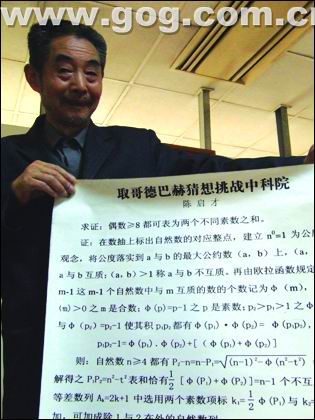 www.gog.com.cn
取哥德巴赫猜想挑战中科院
陈启才
求证:偶数≥8都可表为两个不同素数之和。
证:在数抽上标出自然数的对应整点,建立 n⁰=1 为公度
观念,将公度落实到 a 与 b 的最大公约数(a,b)上,(a,
a 与 b 互质;(a,b)>1 称 a 与 b 不互质。再由欧拉函数规定
m-1 这 m-1 个自然数中与 m 互质的数的个数记为 Φ(m),
(m)>0 之 m 是合数;Φ(p)=p-1 之 p 是素数;p₂>p₁>1 之 Φ
与 Φ(p₂)=p₂-1 使其积 p₁p₂ 都有 Φ(p₁)·Φ(p₂)= Φ(p₁p₂),
p₁p₂-1=Φ(p₁).Φ(p₂)+[Φ(p₁)+Φ(p₂)]
则:自然数 n≥4 都有 P₂-n=n-P₁=√(n-1)²-Φ(n²-t²)
解得之 P₁P₂=n²-t² 表和恰有 1/2 [Φ(P₁)+Φ(P₂)]=n-1 个不互
等差数列 Aₖ=2k+1 中选用两个素数项标 k₁=1/2 Φ(P₁) 与 k₂=
如,可加成除1与2在外的自然数列